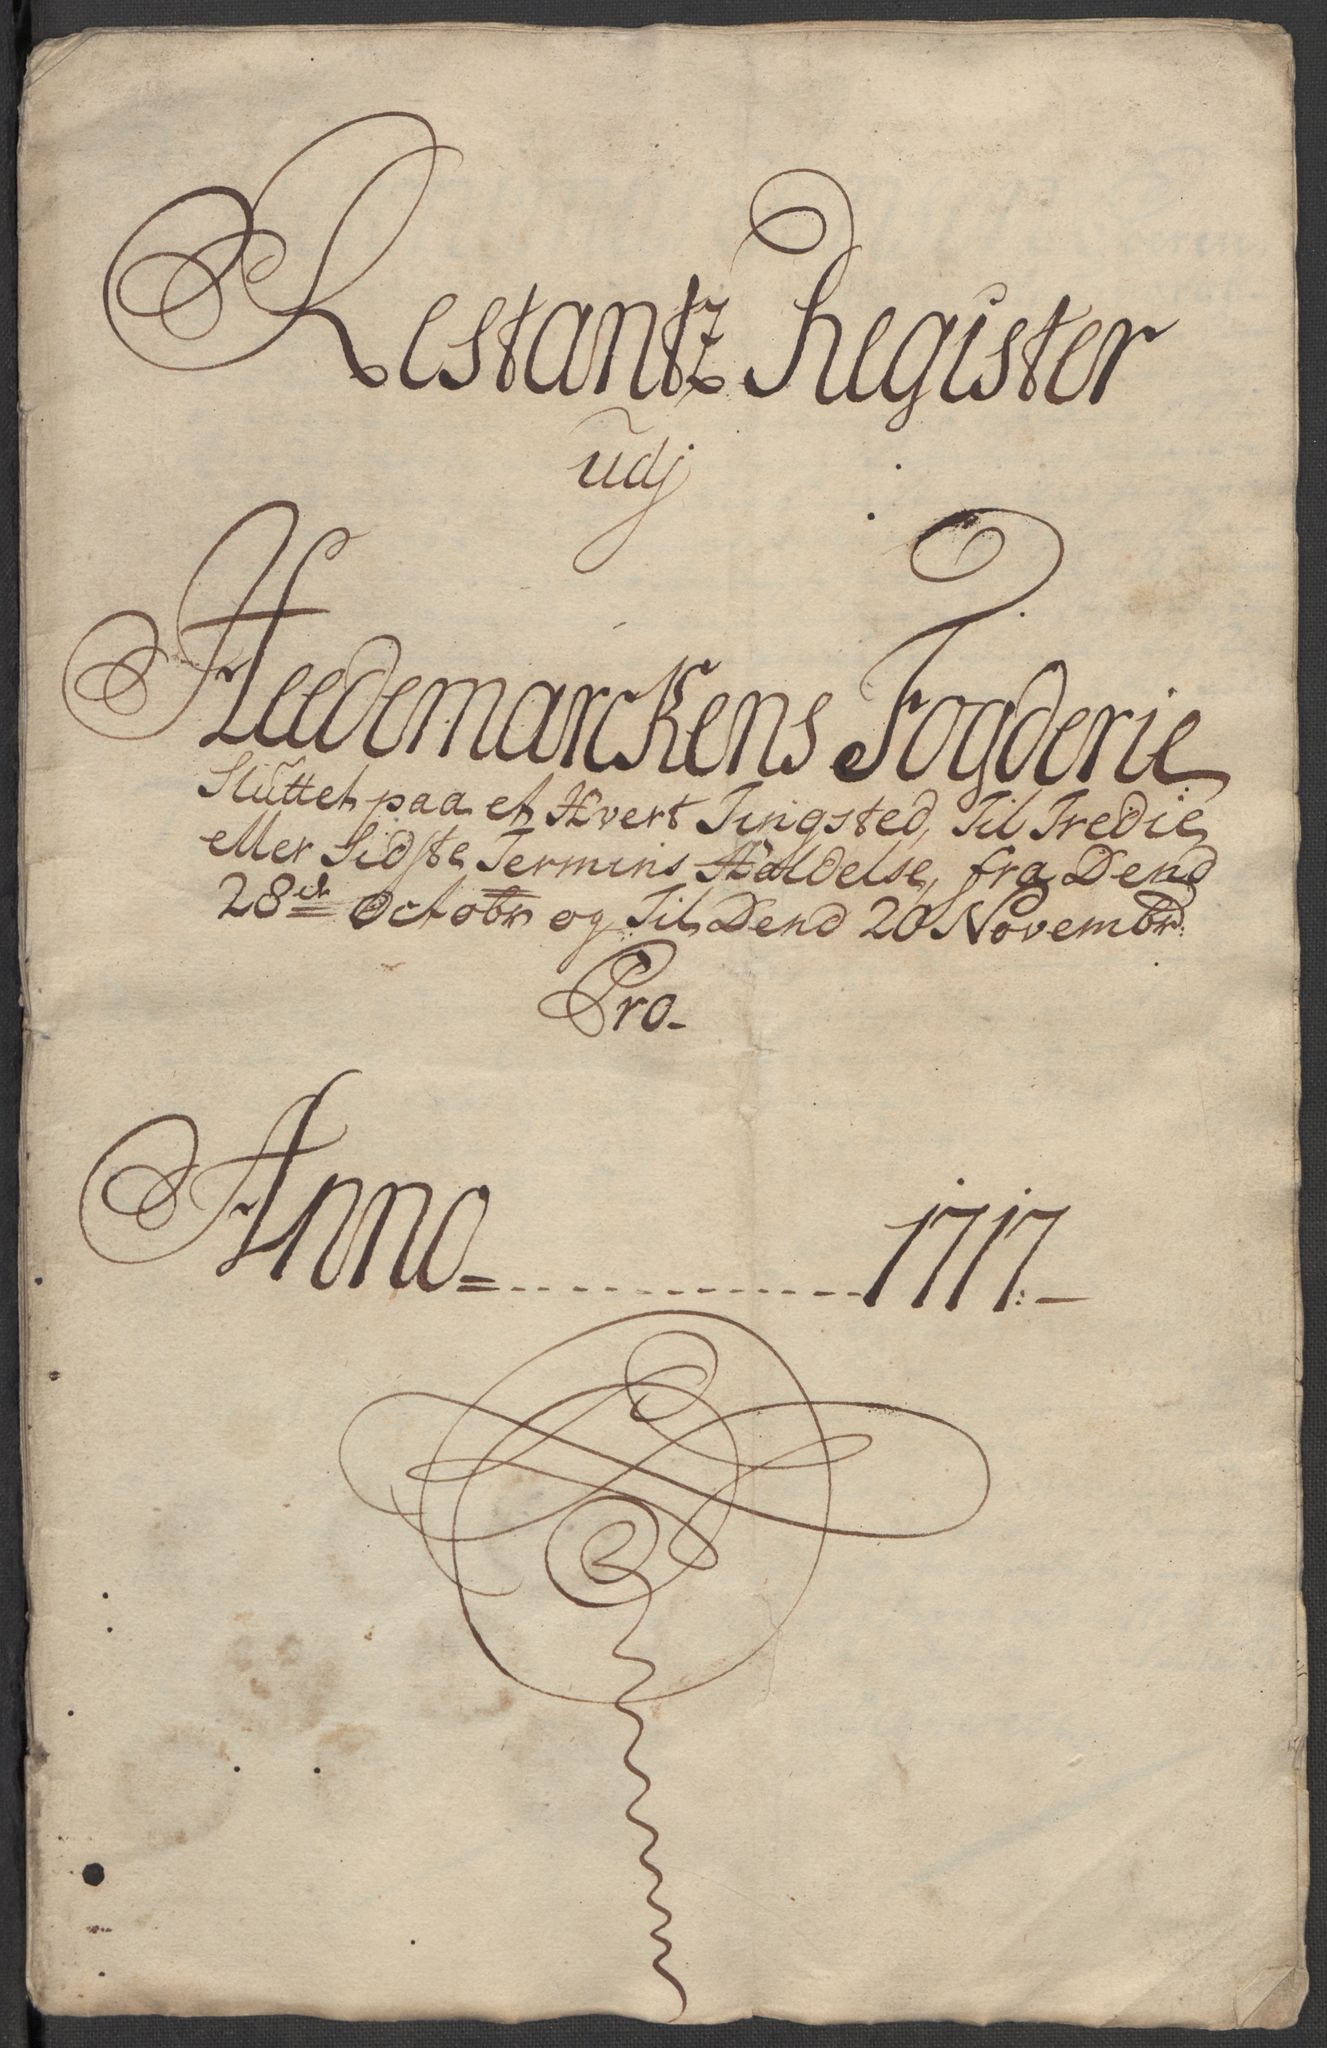 Restantz Register
udj
Heedemarckens Fogderie
Sluttet paa et Hvert Tingsted, Til Tredie
eller Sidste Termins Holdelse, fra Dend
28de Octobr og Til Dend 20 Novembr:
Pro-
Anno= - - - - - - - - - - - - - 1717:-